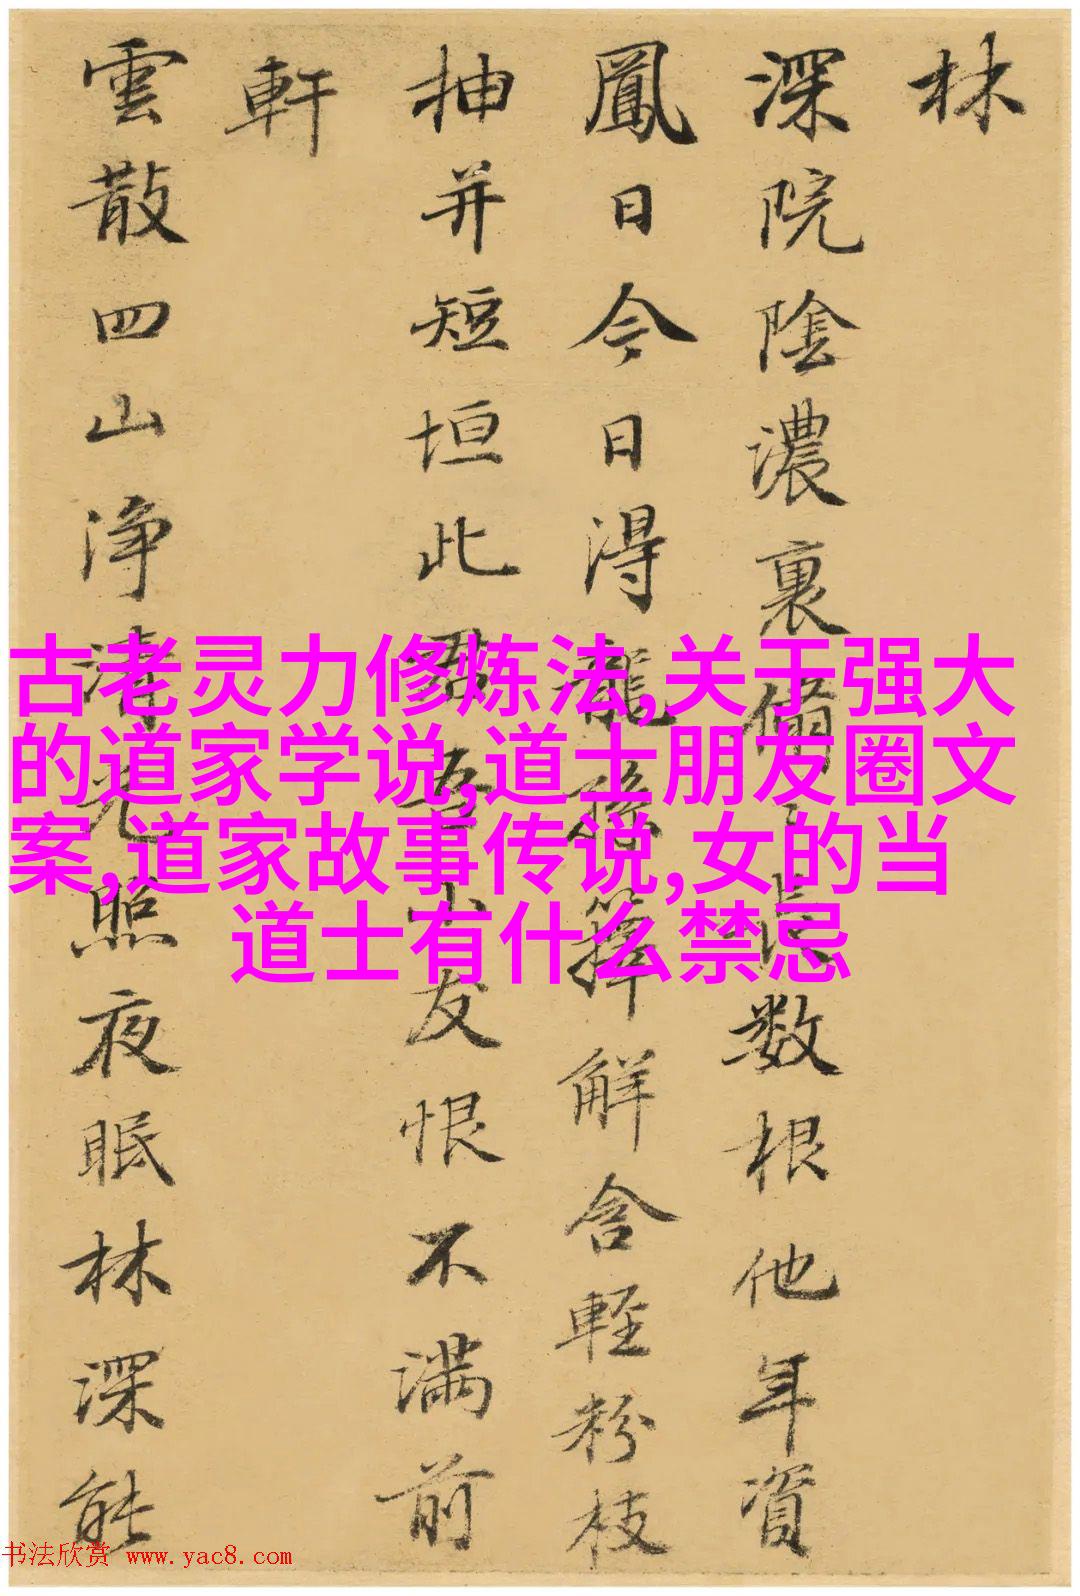 林
深院陰濃裏長数根他年資
鳳日今日得龍孫籜解含輕粉枝
抽并短垣此君吾友恨不满前
軒
雲散四山浄清光照夜眠林深能
古老灵力修炼法,关于强大
的道家学说,道士朋友圈文
案,道家故事传说,女的当
道士有什么禁忌
书法欣赏 www.yac8.com